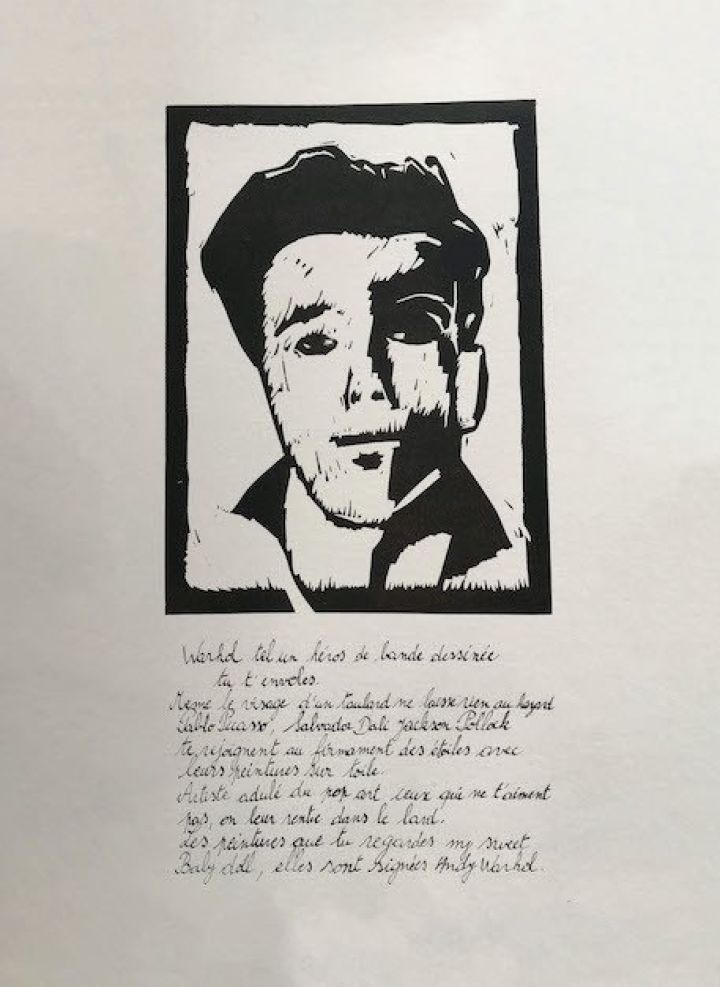 Warhol tel un héros de bande dessinée
tu t'envoles.
Meme le visage d'un taulard ne laisse rien au hazard
Pablo Picasso, Salvador Dali Jackson Pollock
te rejoignent au firmament des étoiles avec
leurs peintures sur toile.
Artiste adulé du pop art ceux qui ne t'aiment
pas, on leur rentre dans le lard.
Les peintures que tu regardes my sweet
Baby doll, elles sont signées Andy Warhol.